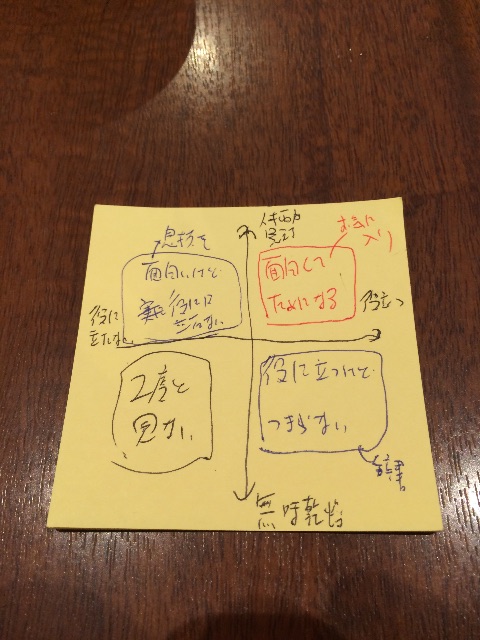 息抜き
お気に
入り
面白いけど
役には
立たない
面白くて
ためになる
役に
立たない
役立つ
2度と
見ない
役に立つけど
つまらない
無味乾燥